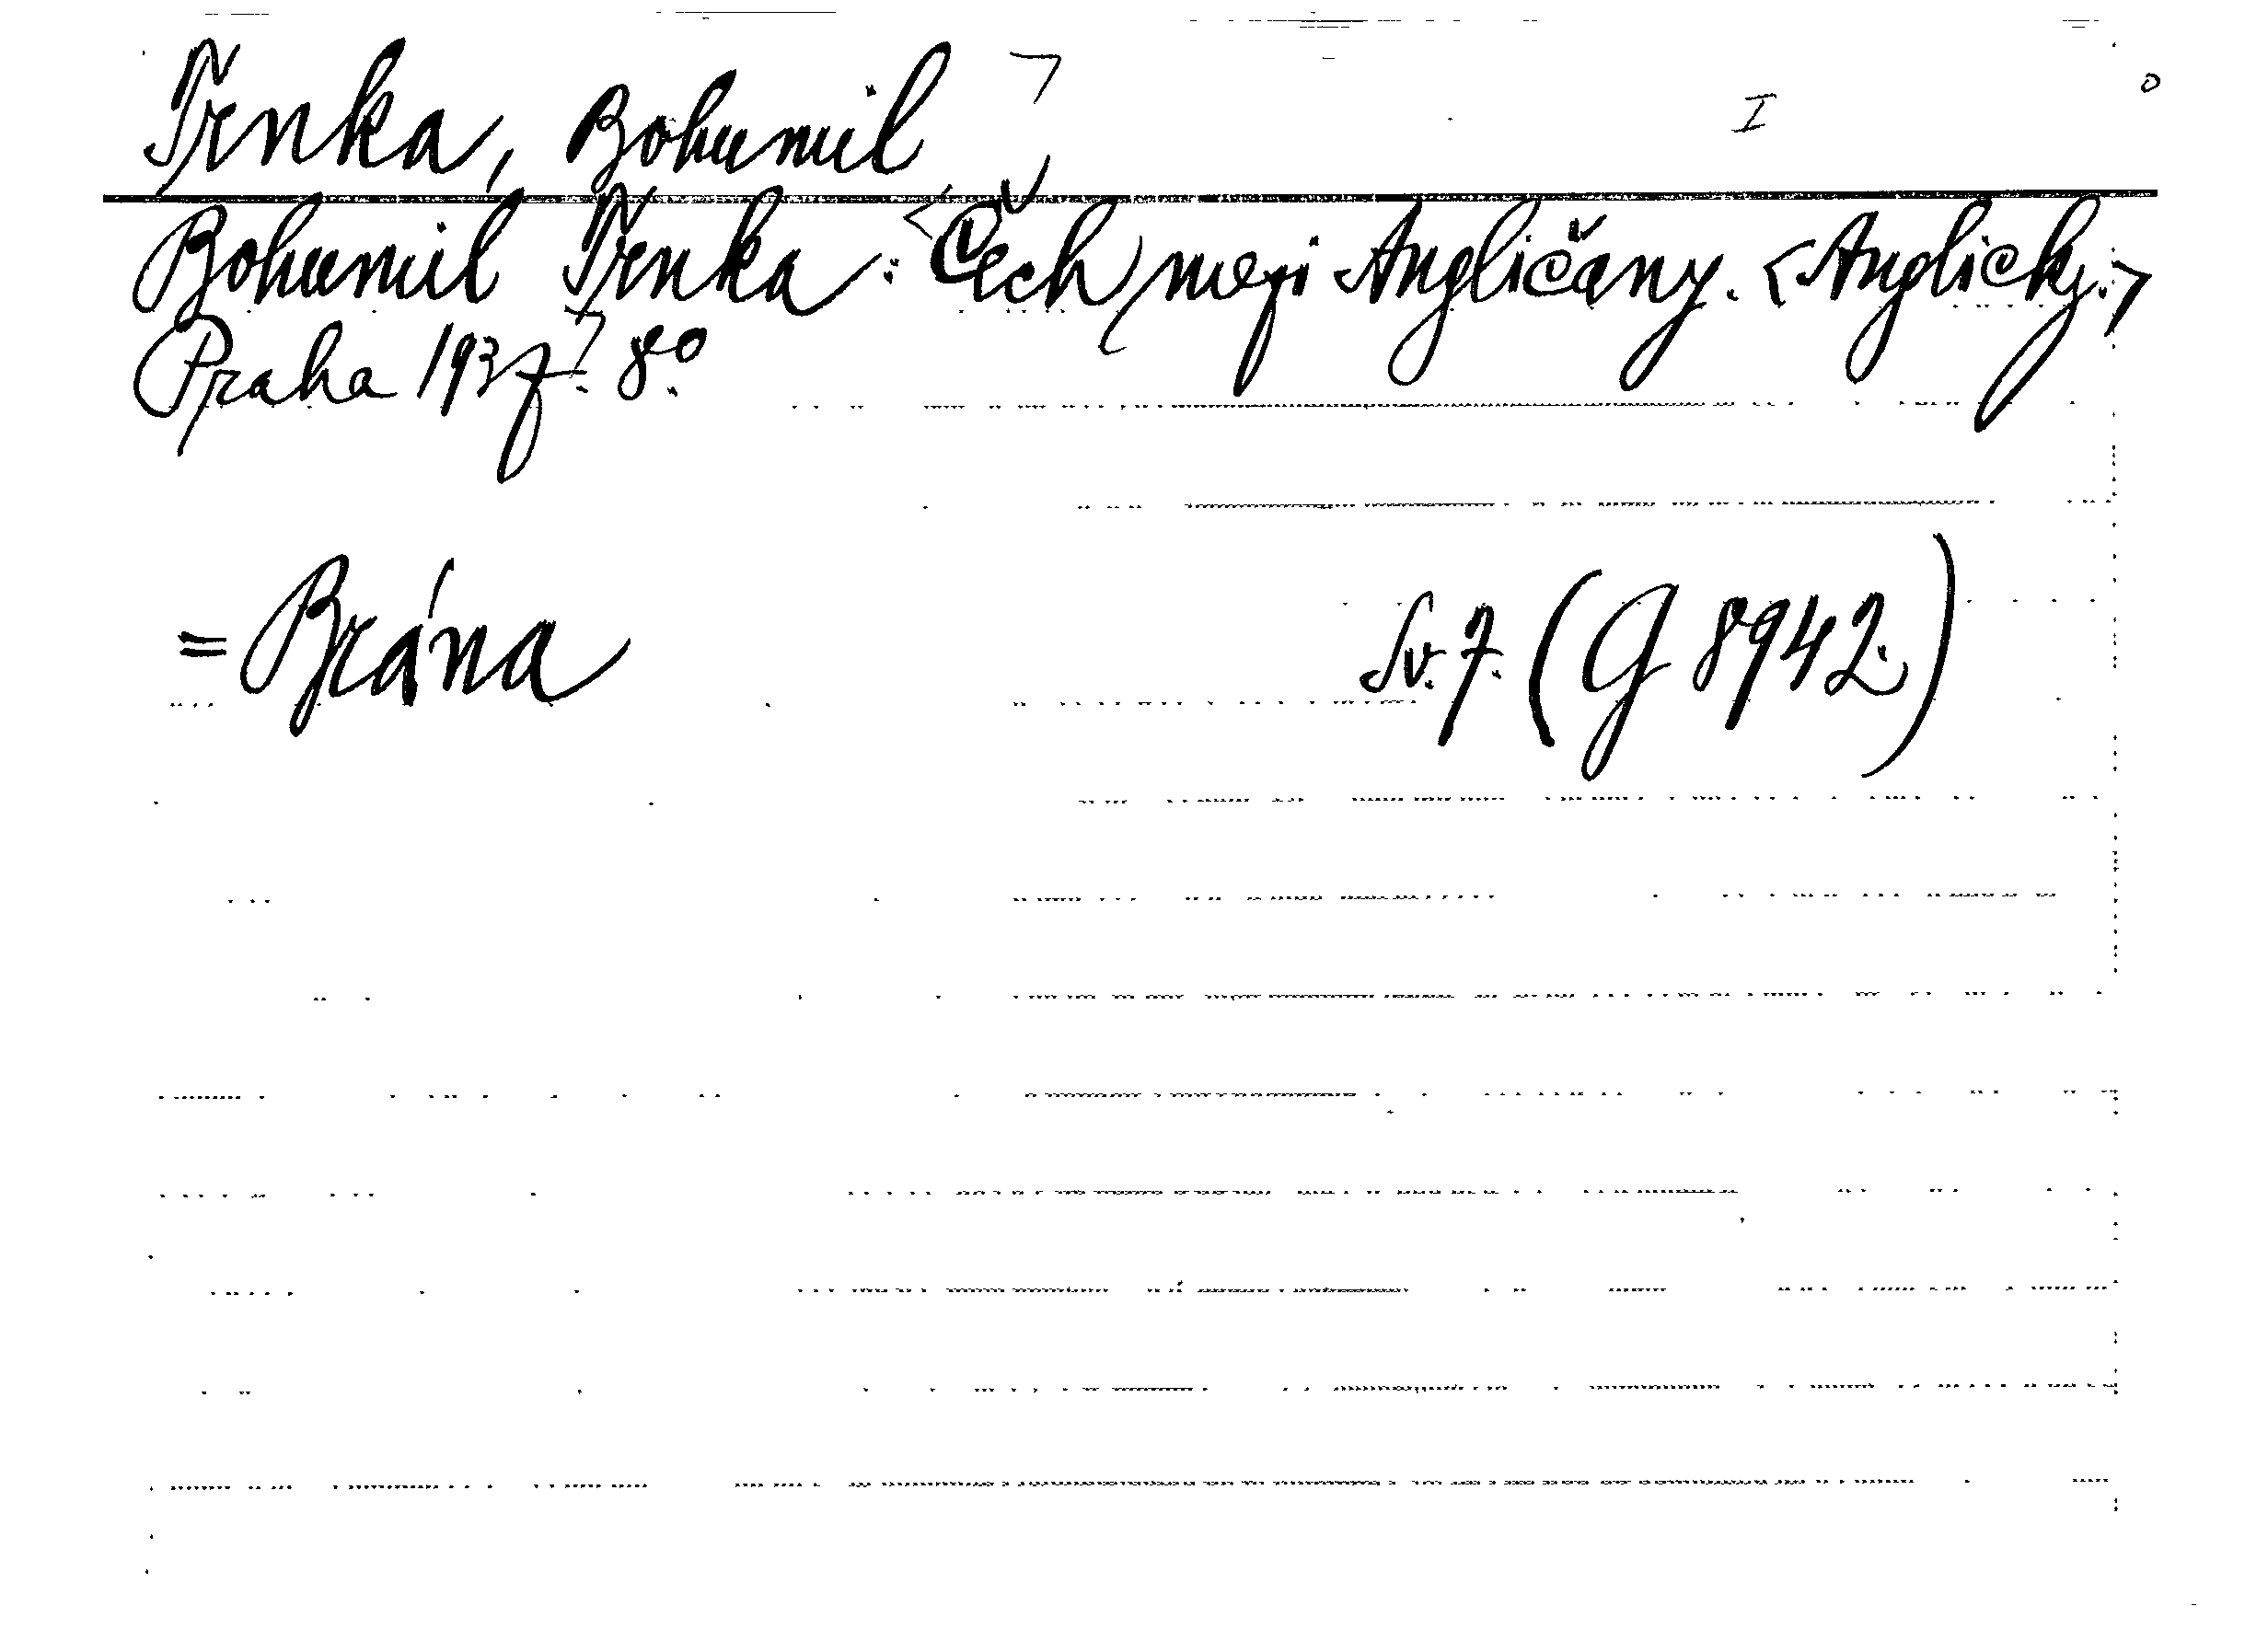 Trnka, Bohumil ⌝ I
Bohumil Trnka: <Čech mezi Angličany. <Anglicky.>
Praha 1937⌝. 8°.
= Brána Sv. 7. (G 8942.)